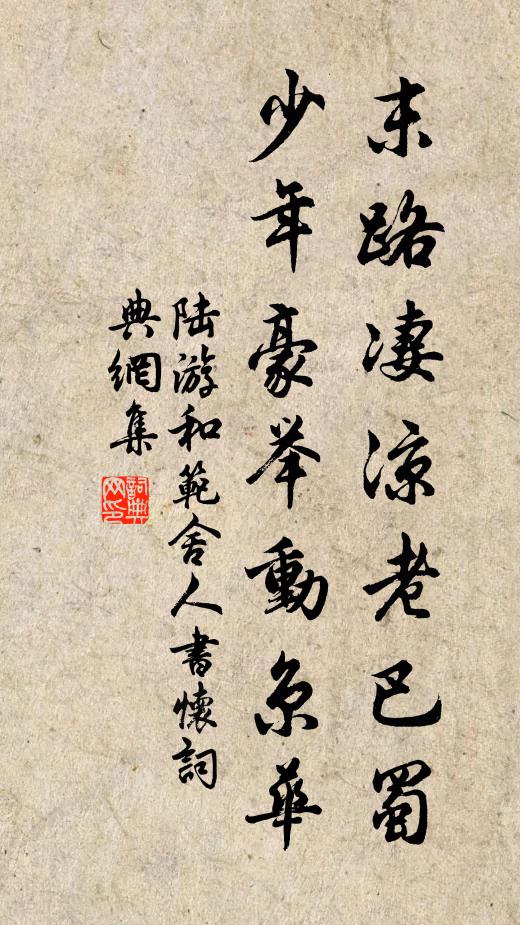 末路凄涼老巴蜀
少年豪举動京華
陆游和範舍人書懷詞
典網集
詞典网印